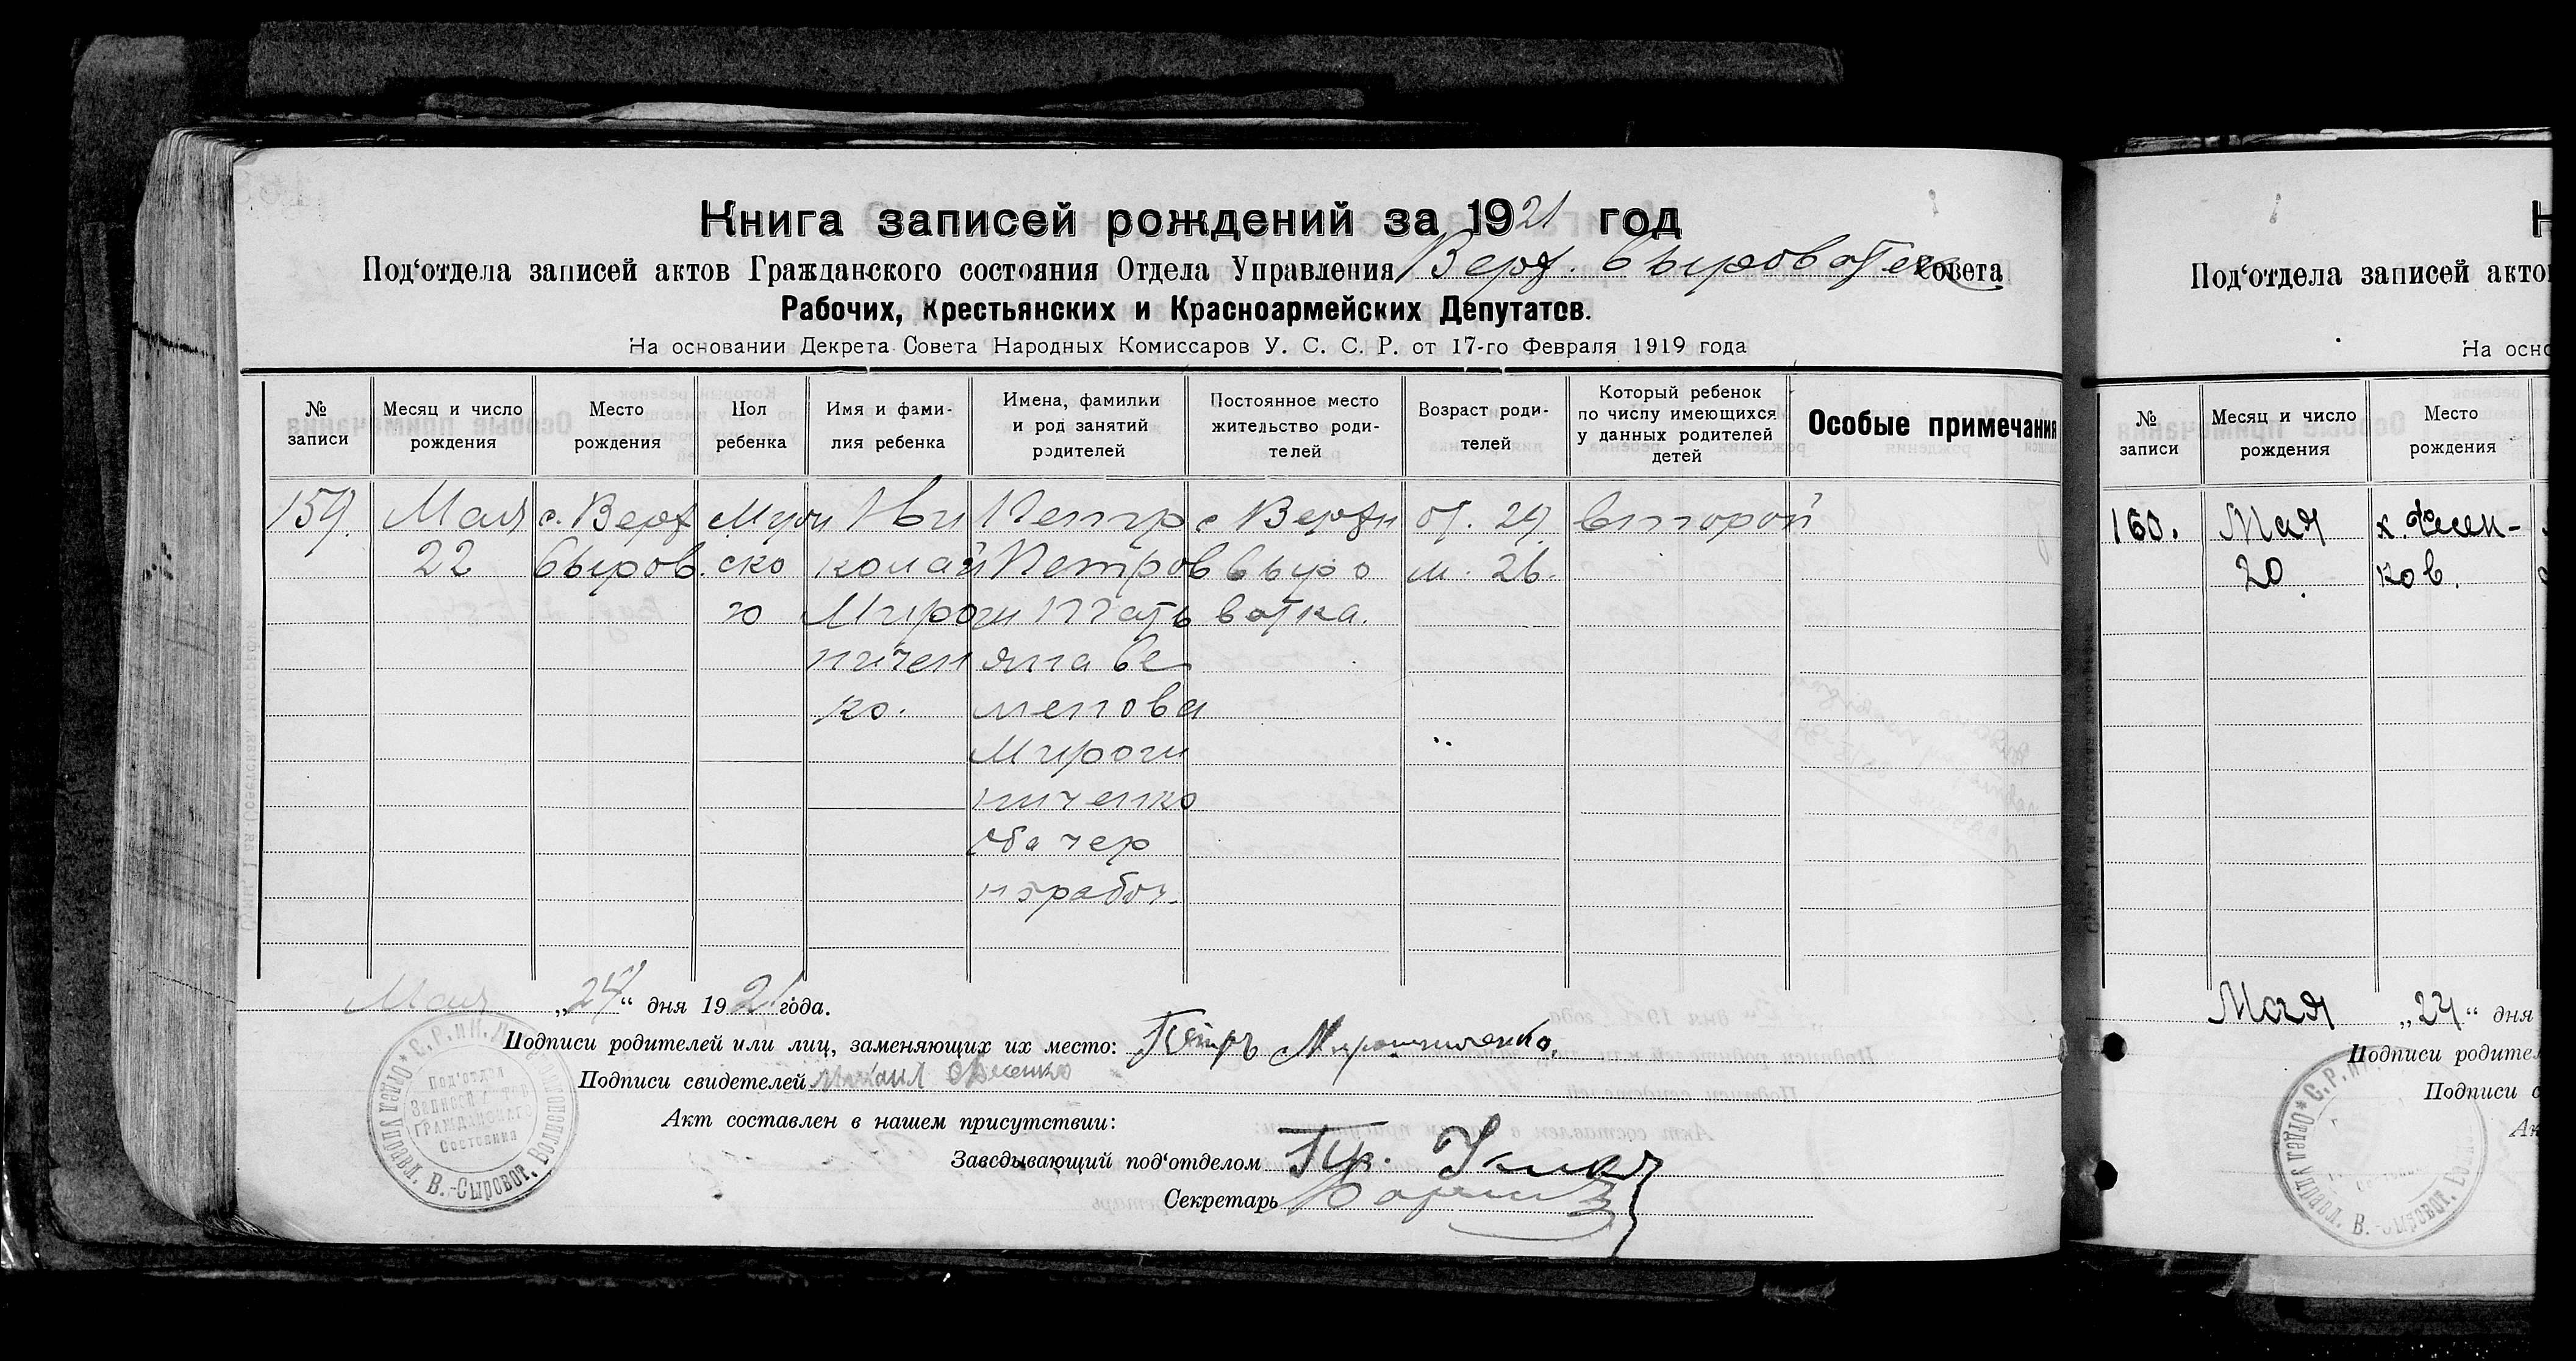 Книга записей рождений за 1921 год
Под‘отдела записей актов Гражданского состояния Отдела Управления Верх. Сыроватск совета
Рабочих, Крестьянских и Красноармейских Депутатов.
На основании Декрета Совета Народных Комиссаров У. С. С. Р. от 17-го Февраля 1919 года
№ записи
Месяц и число рождения
Место рождения
Пол ребенка
Имя и фами-
лия ребенка
Имена, фамилии
и род занятий
родителей
Постоянное место
жительство роди-
телей
Возраст роди-
телей
Который ребенок
по числу имеющихся
у данных родителей
детей
Особые примечания
159.
Мая
22
с. Верх
Сыров.
Мужи
ско
го
Ни
колай
Мирош
ничен
ко.
Петр
Петров
и Тать
яна Се
менова
Мирош
ниченко
Оба чер
норабоч.
с Верхн
Сыро
ватка.
от. 29.
м. 26.
второй
Мая „24“ дня 1921 года.
Подписи родителей или лиц, заменяющих их место: Петръ Мирошниченко.
Подписи свидетелей Михаил
Акт составлен в нашем присутствии:
Заведывающий под‘отделом
Секретарь
Под‘отдел
Записей Актов
Гражданскаго
Состояния
Отдел Управл. В.-Сыроват. Волостного
Под‘отдела записей акто
На осно
№
записи
Месяц и число
рождения
Место
рождения
160.
Мая
20.
ков.
Мая „24“ дня
Подписи родител
Подписи с
Ак